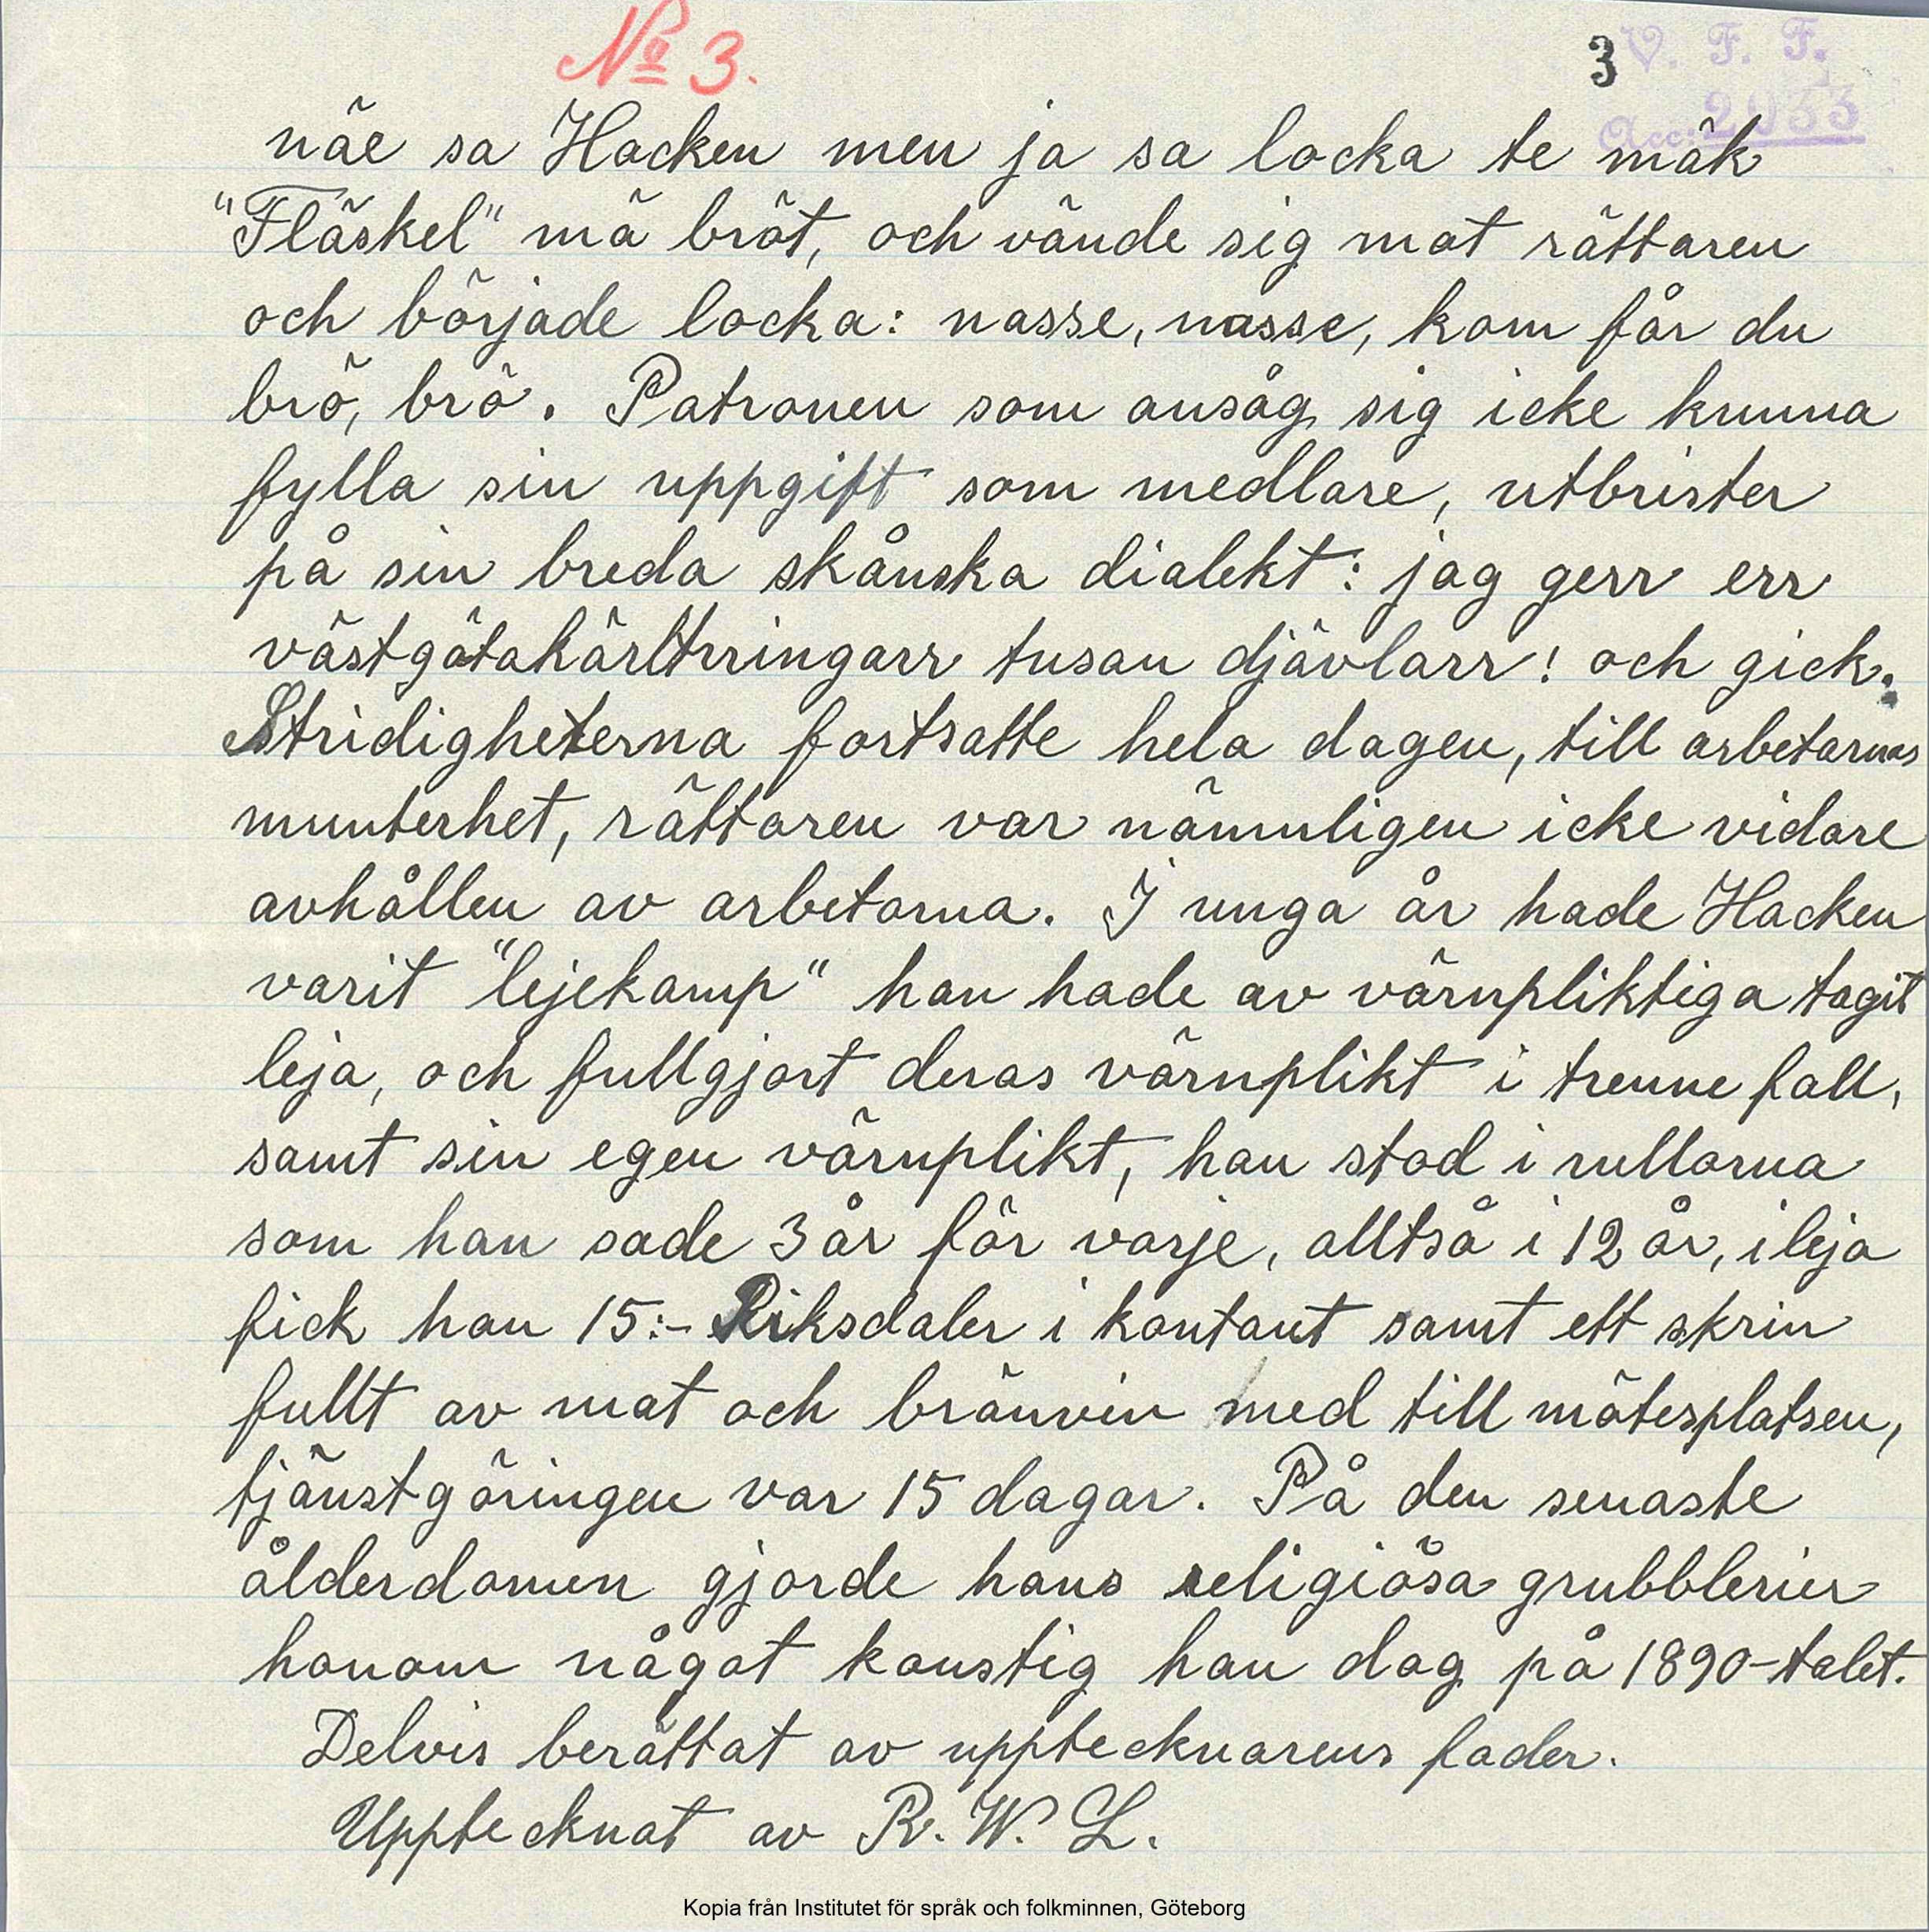 No 3.
3 V. F. F.
Acc: 2033
näe sa Hacken men ja sa locka te mäk
"Fläskel" mä bröt, och vände sig mot rättaren
och började locka: nasse, nasse, kom får du
brö, brö. Patronen som ansåg sig icke kunna
fylla sin uppgift som medlare, utbrister
på sin breda skånska dialekt: jag gerr err
västgötakärltrringarr tusan djävlarr! och gick.
Stridigheterna fortsatte hela dagen, till arbetarnas
munterhet, rättaren var nämnligen icke vidare
avhållen av arbetarna. I unga år hade Hacken
varit "lejekamp" han hade av värnpliktiga tagit
leja, och fullgjort deras värnplikt i trenne fall,
samt sin egen värnplikt, han stod i rullorna
som han sade 3 år för varje, alltså i 12 år, i leja
fick han 15:- Riksdaler i kontant samt ett skrin
fullt av mat och bränvin med till mötesplatsen,
tjänstgöringen var 15 dagar. På den senaste
ålderdomen gjorde hans religiösa grubblerier
honom något konstig han dog på 1890-talet.
Delvis berättat av upptecknarens fader.
Upptecknat av R. W. L.
Kopia från Institutet för språk och folkminnen, Göteborg